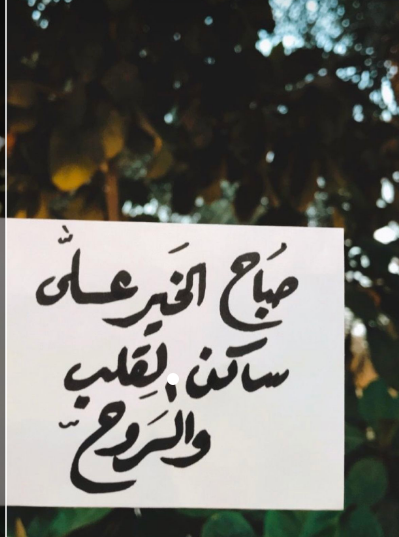 صَباحُ الخَير عـلى
ساكن القَلب
والرَوح